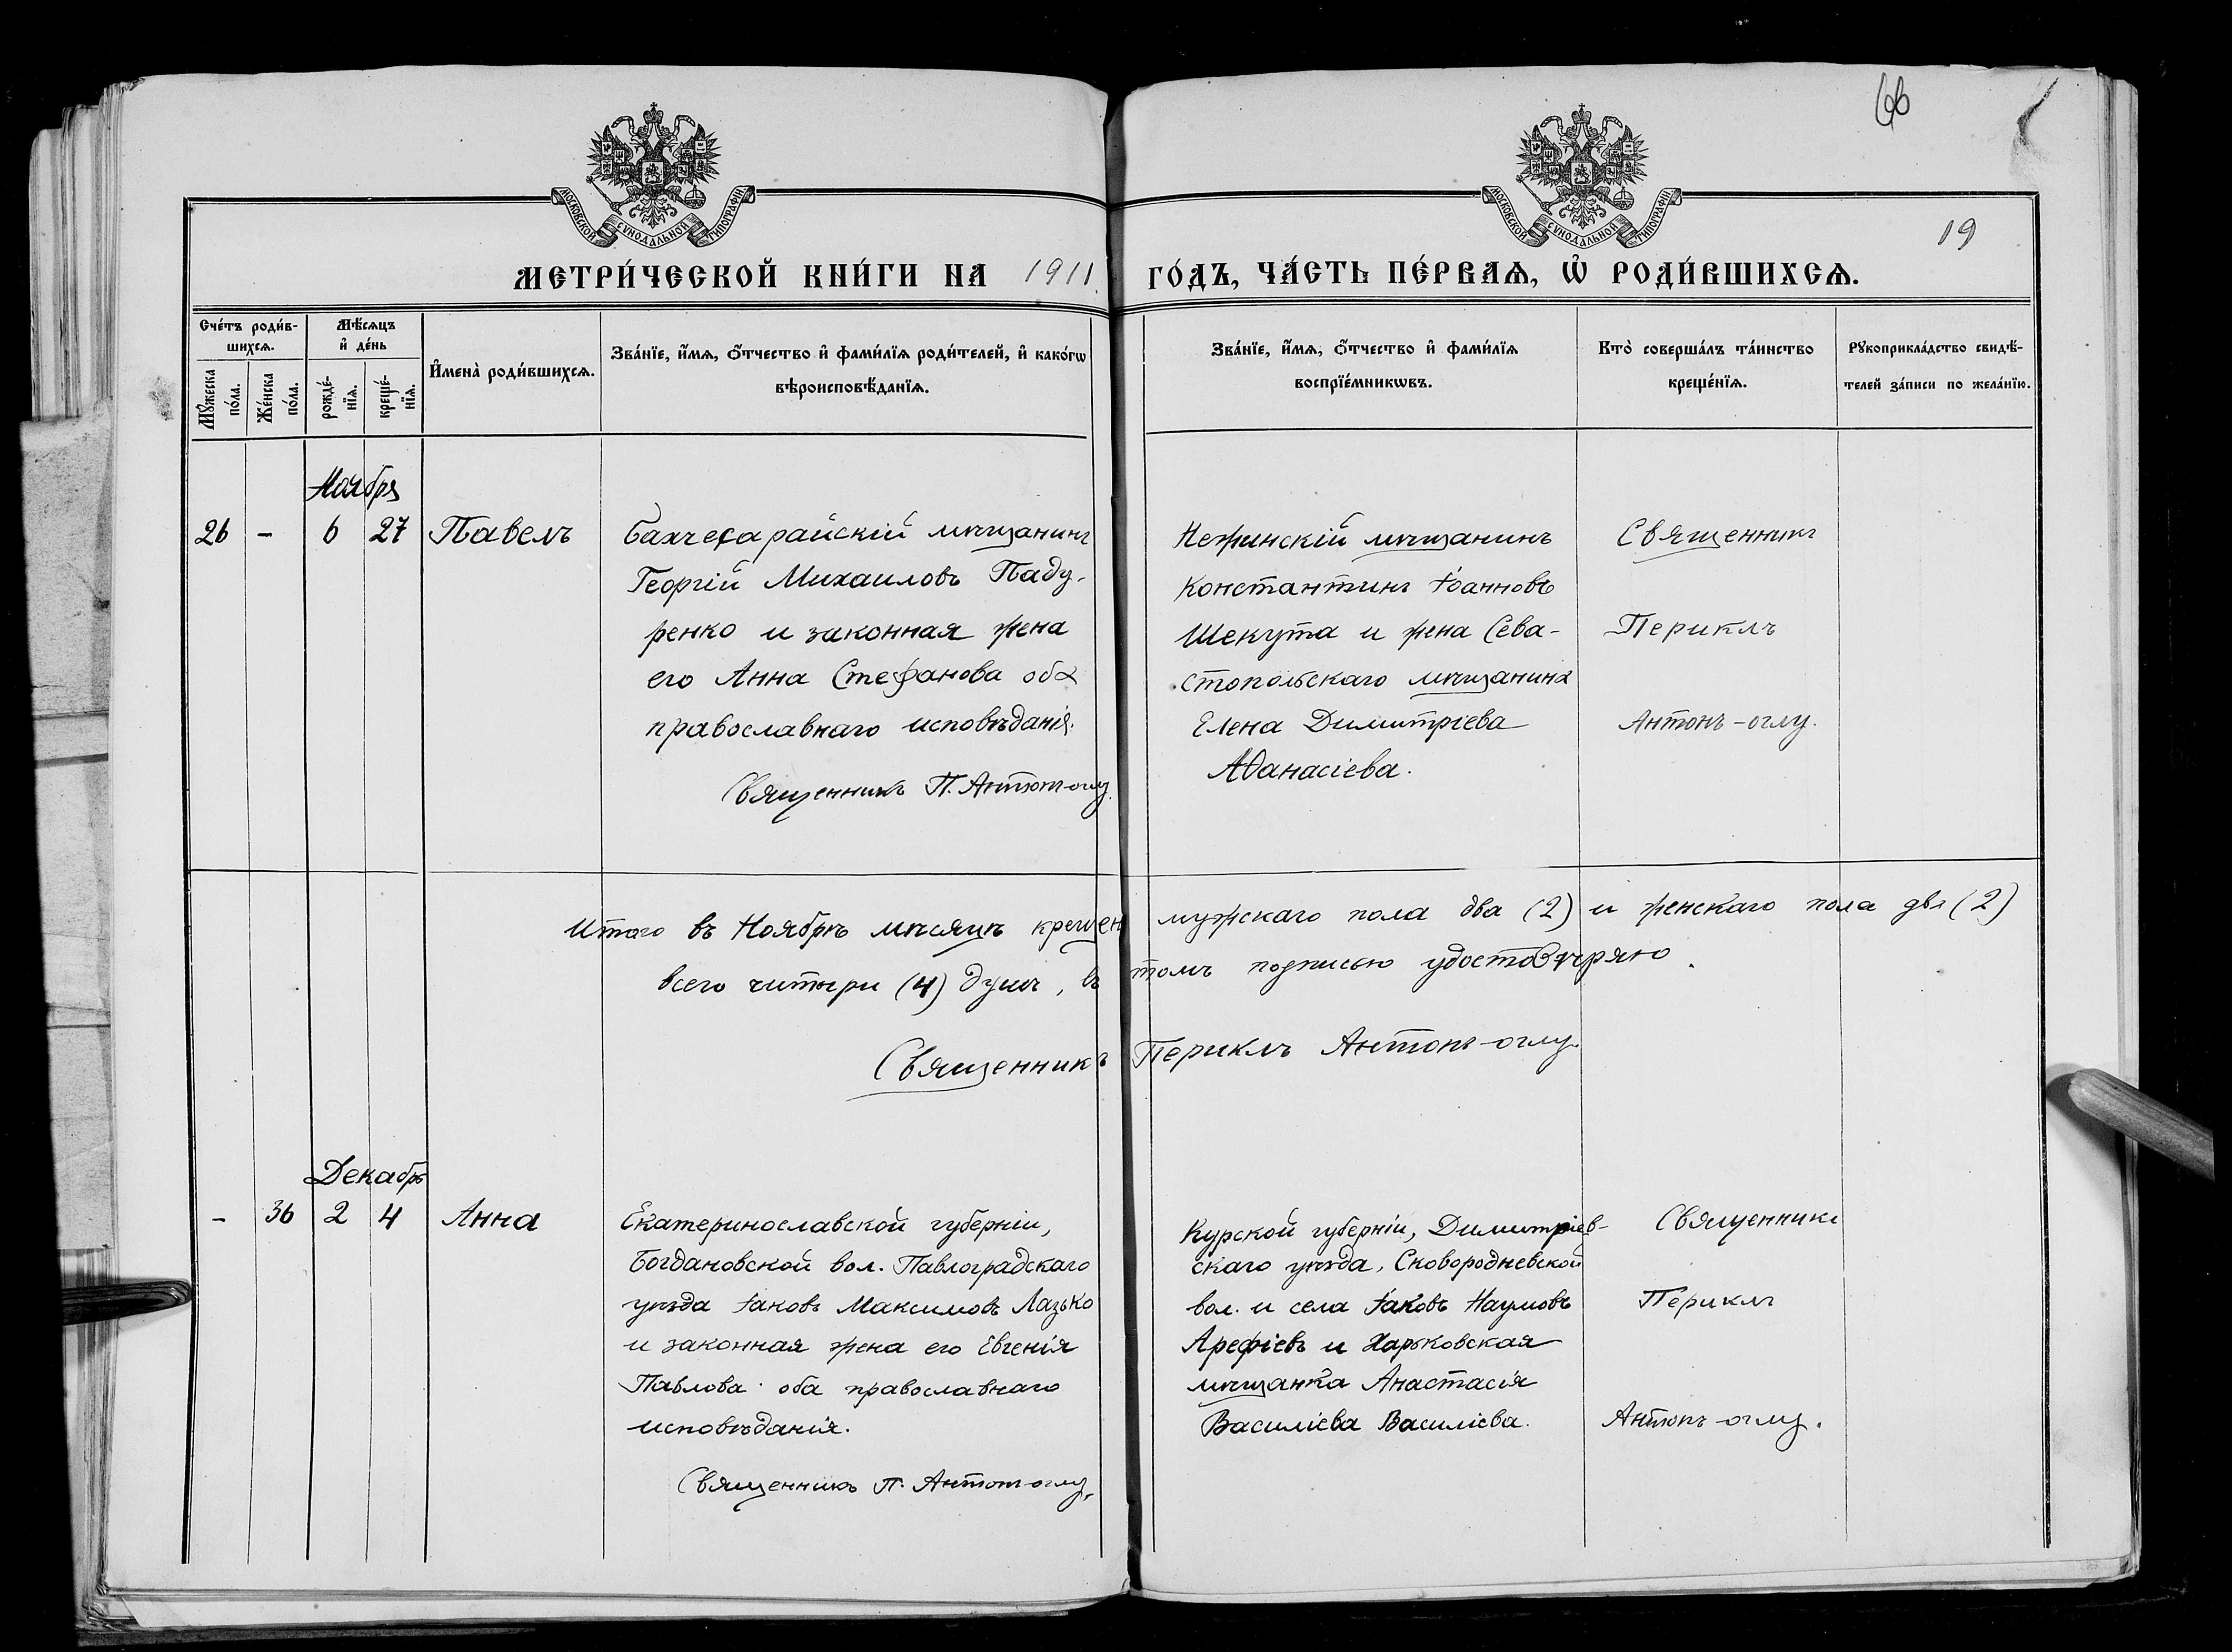 66
МОСКОВСКОЙ СѴНОДАЛЬНОЙ ТИПОГРАФІИ
МОСКОВСКОЙ СѴНОДАЛЬНОЙ ТИПОГРАФІИ
19
МЕТРИ́ЧЕСКОЙ КНИ́ГИ НА 1911 ГО́ДЪ, ЧА́СТЬ ПЕ́РВАѦ, Ѡ҆ РОДИ́ВШИХСѦ.
Сче́тъ роди́в-
шихсѧ.
Мꙋ́жеска по́ла.
Же́нска по́ла.
Мѣ́сѧцъ
и҆ де́нь
рожде́-
нїѧ.
креще́-
нїѧ.
И҆мена̀ роди́вшихсѧ.
Зва́нїе, и҆́мѧ, ѻ҆́тчество и҆ фами́лїѧ роди́телей, и҆ како́гѡ
вѣроисповѣ́данїѧ.
Зва́нїе, и҆́мѧ, ѻ҆́тчество и҆ фами́лїѧ
воспрїе́мникѡвъ.
Кто̀ соверша́лъ та́инство
креще́нїѧ.
Рꙋкоприкла́дство свидѣ́-
телей за́писи по жела́нїю.
Ноябрь
26 - 6 27 Павелъ
Бахчесарайскій мѣщанинъ
Георгій Михаиловъ Паду-
ренко и законная жена
его Анна Стефанова оба
православнаго исповѣданія.
Священникъ П. Антонъ-оглу.
Нежинскій мѣщанинъ
Константинъ Іоанновъ
Шекута и жена Сева-
стопольскаго мѣщанина
Елена Димитріева
Аѳанасіева.
Священникъ
Периклъ
Антонъ-оглу.
Итого въ Ноябрѣ мѣсяцѣ крещен мужскаго пола два (2) и женскаго пола два (2)
всего читыри (4) душъ, въ томъ подписью удостовѣряю.
Священникъ Периклъ Антонъ-оглу.
Декабрь
- 36 2 4 Анна
Екатеринославской губерніи,
Богдановской вол. Павлоградскаго
уѣзда Іаковъ Максимовъ Лазько
и законная жена его Евгенія
Павлова оба православнаго
исповѣданія.
Священникъ П. Антонъ-оглу.
Курской губерніи, Димитріев-
скаго уѣзда, Сковородневской
вол. и села Іаковъ Наумовъ
Арефіевъ и Харьковская
мѣщанка Анастасія
Василіева Василіева.
Священникъ
Периклъ
Антонъ-оглу.